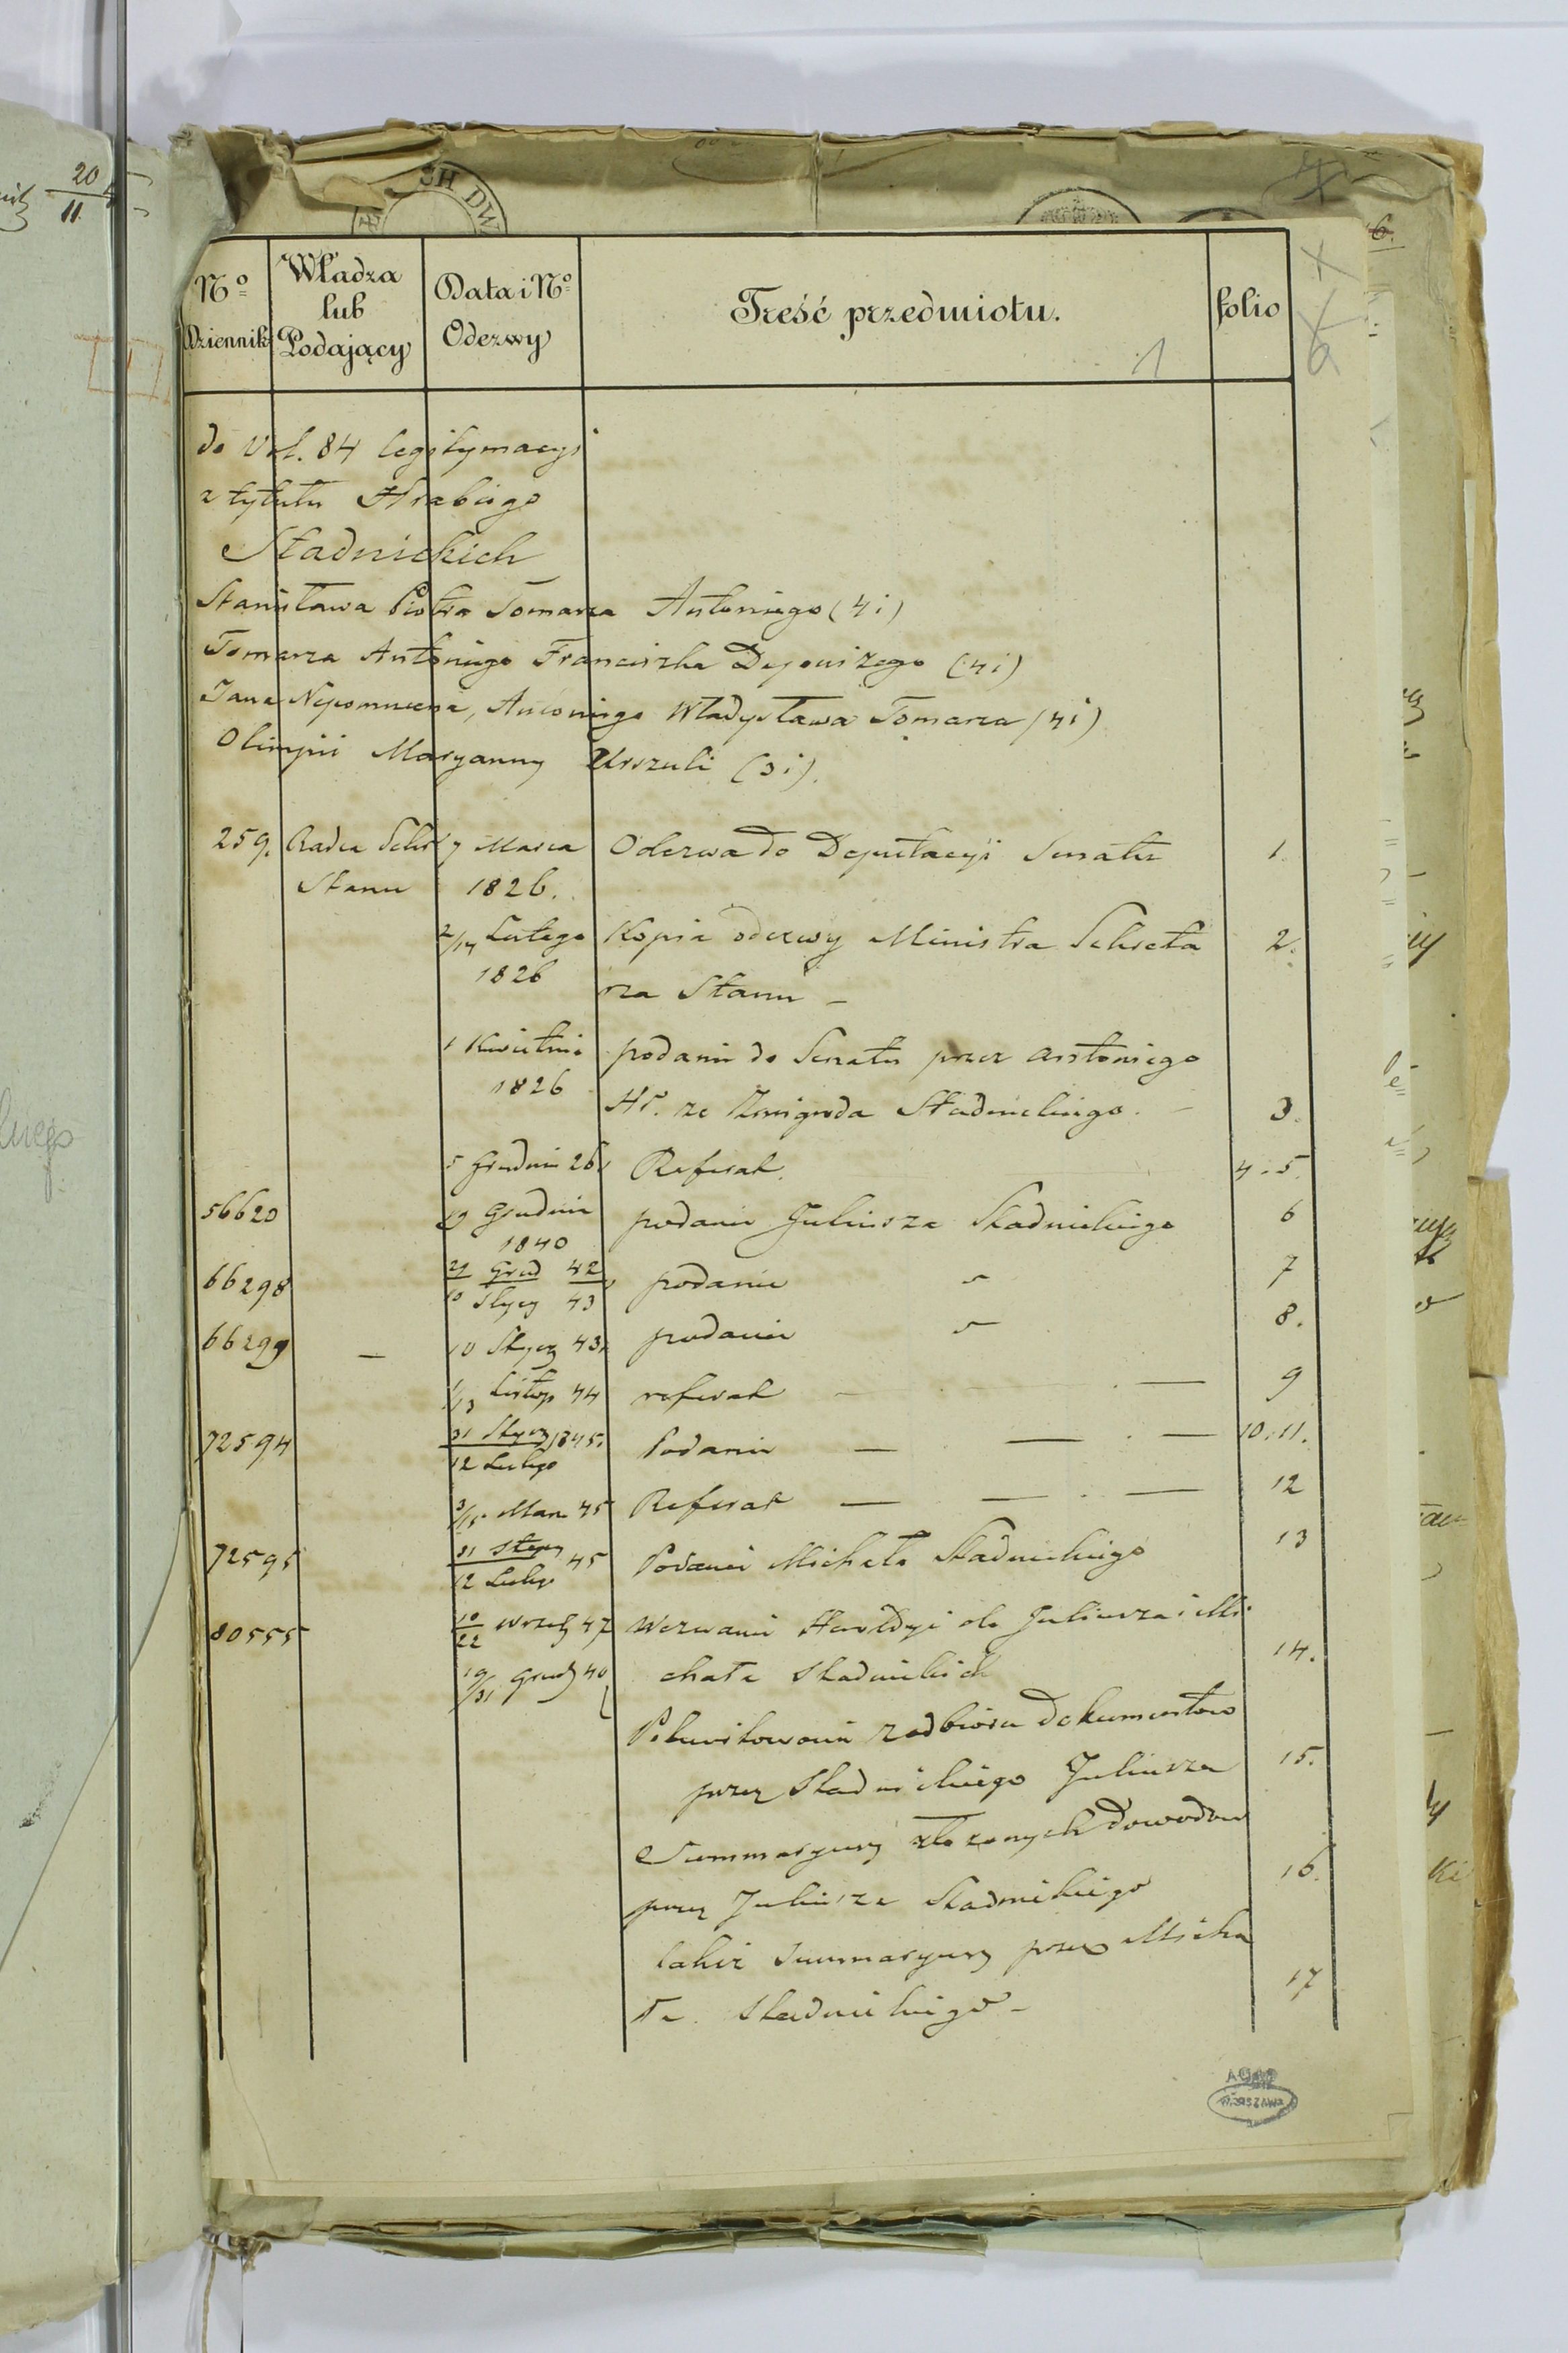 20
11
CH DW
6.
Nº Dziennik
Władza lub Podający
Data i Nº Odezwy
Treść przedmiotu.
folio
1
do Vol. 84 legitymacyi
z tytułu Hrabiego
Stadnickich
Stanisława Piotra Tomasza Antoniego (4i)
Tomasza Antoniego Franciszka (4i)
Jana Nepomucena, Antoniego Władysława Tomasza (4i)
Olimpii Maryanny Urszuli (3i).
259. Radca Sekr 7 Marca Odezwa do Deputacyi Senatu 1.
Stanu 1826.
2/14 Lutego Kopia odezwy Ministra Sekreta 2.
1826 rza Stanu –
1 Kwietnia podanie do Senatu przez Antoniego
1826 Hr. ze Zmigroda Stadnickiego. – 3.
5 Grudnia 26 Referat. 4-5.
56620 19 Grudnia podanie Juliusza Stadnickiego 6
1840
66298 29 Grud 42 / 10 Stycz 43 podanie " 7
66299 — 10 Stycz 43 podanie " 8.
1/13 Listop 44 referat — . — 9
72594 31 Stycz / 12 Lutego 1845. Podanie — — . — 10.11.
3/15 Mar 45 Referat — — . — 12
72595 31 Stycz / 12 Lutego 45 Podanie Michała Stadnickiego 13
80555 10/22 Wrześ 47 Wezwanie Heroldyi do Juliusza i Mi
19/31 Grud 40 chała Stadnickich 14.
Pokwitowanie z odbioru dokumentow
przez Stadnickiego Juliusza 15.
Summaryusz złożonych Dowodow
przez Juliusza Stadnickiego 16.
takiż Summaryusz przez Micha
ła Stadnickiego – 17
AGAD
WARSZAWA